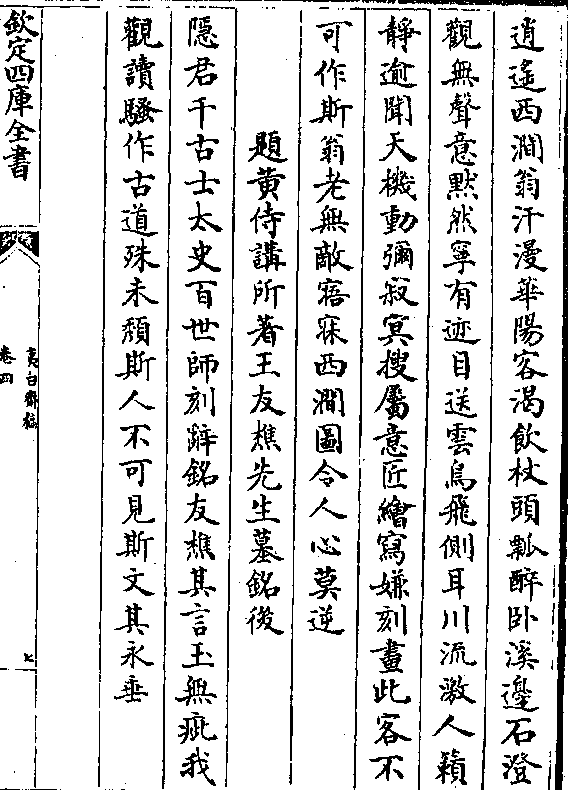 逍遙西澗翁汗漫華陽客渴飲杖頭瓢醉卧溪邊石澄
觀無聲意黙然寧有迹目送雲鳥飛側耳川流激人籟
靜逾聞天機動彌寂冥搜屬意匠繪寫嫌刻畫此客不
可作斯翁老無敵寤寐西澗圖令人心莫逆
題黄侍講所著王友樵先生墓銘後
隱君千古士太史百世師刻辭銘友樵其言玉無疵我
觀讀騷作古道殊未頹斯人不可見斯文其永垂
欽定四庫全書
夷白齋稿
卷四
七